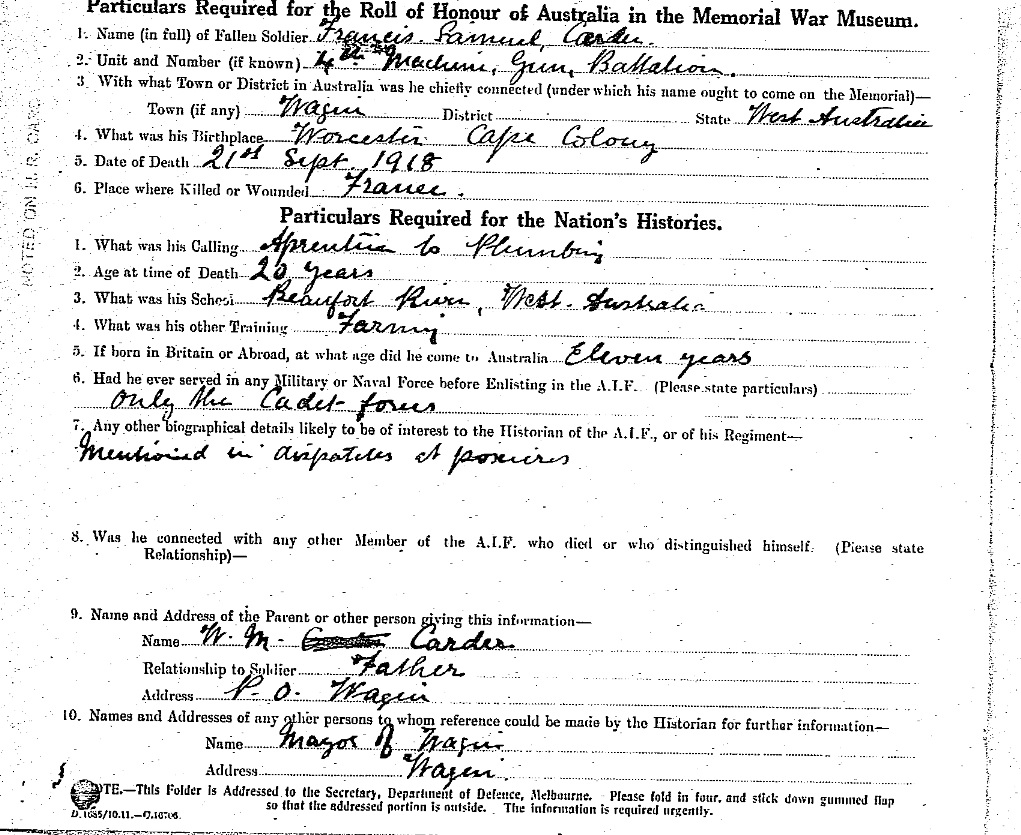 Particulars Required for the Roll of Honour of Australia in the Memorial War Museum.
1. Name (in full) of Fallen Soldier Francis. Samuel, Carder.
2. Unit and Number (if known) 4th Machine, Gun, Battalion.
3. With what Town or District in Australia was he chiefly connected (under which his name ought to come on the Memorial)—
Town (if any) Wagin District State West Australia
4. What was his Birthplace Worcester Cape Colony
5. Date of Death 21st Sept. 1918
6. Place where Killed or Wounded France.
Particulars Required for the Nation's Histories.
1. What was his Calling Aprentice to Plumbing
2. Age at time of Death 20 years
3. What was his School Beaufort River, West. Australia
4. What was his other Training Farming
5. If born in Britain or Abroad, at what age did he come to Australia Eleven years
6. Had he ever served in any Military or Naval Force before Enlisting in the A.I.F. (Please state particulars)
only the Cadet forces
7. Any other biographical details likely to be of interest to the Historian of the A.I.F., or of his Regiment—
Mentioned in dispatches at posieres
8. Was he connected with any other Member of the A.I.F. who died or who distinguished himself. (Please state
Relationship)—
9. Name and Address of the Parent or other person giving this information—
Name W. M. Carder
Relationship to Soldier Father
Address P. O. Wagin
10. Names and Addresses of any other persons to whom reference could be made by the Historian for further information—
Name Mayor of Wagin
Address Wagin.
NOTED ON H.R. CARD
NOTE.—This Folder is Addressed to the Secretary, Department of Defence, Melbourne. Please fold in four, and stick down gummed flap
so that the addressed portion is outside. The information is required urgently.
D.1685/10.11.—C.16706.